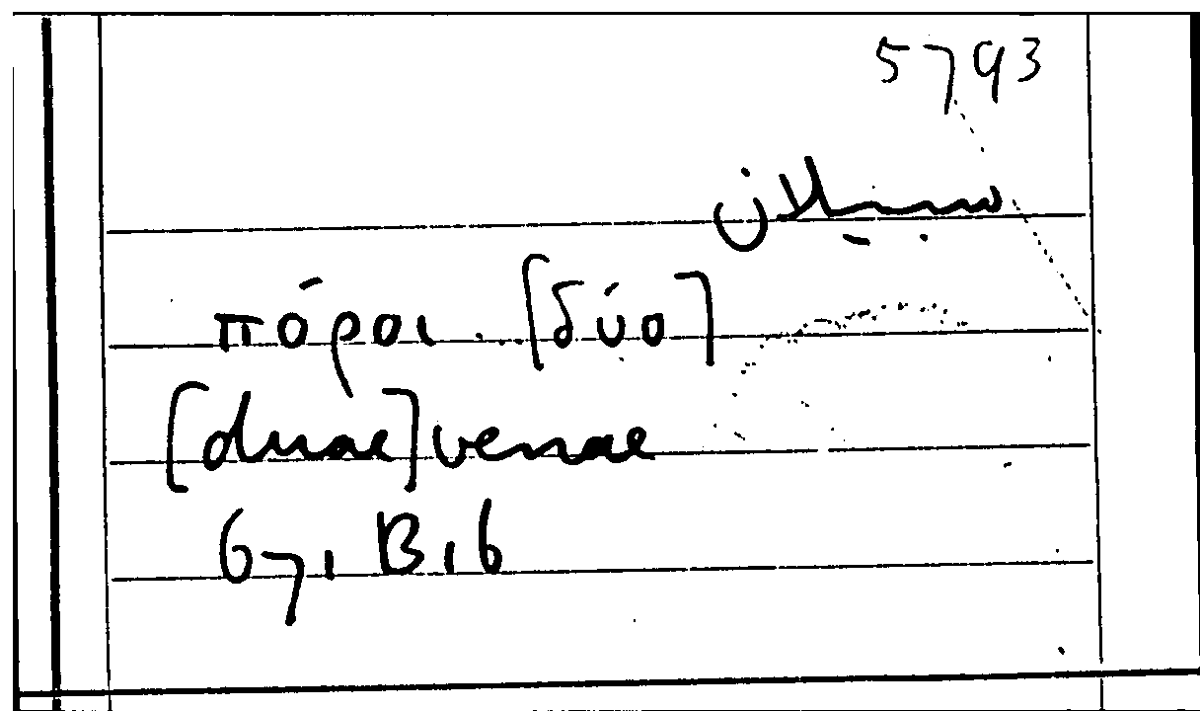 5793
سبيلان
πόροι [δύο]
[duae] venae
67, B, 6